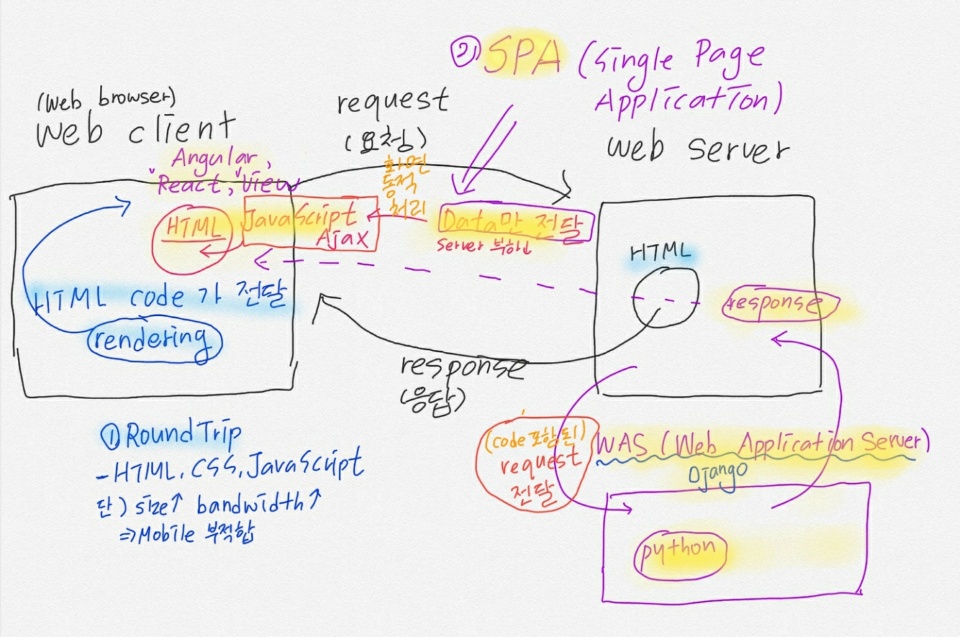 ② SPA (Single Page
Application)
(Web browser)
Web client
request
(요청)
Web Server
Angular,
React, View
화면
동적
처리
HTML
JavaScript
Ajax
Data만 전달
Server 부하↓
HTML
HTML code가 전달
rendering
response
response
(응답)
① Round Trip
- HTML, CSS, JavaScript
단) size↑ bandwidth↑
⇒ Mobile 부적합
(code 포함된)
request
전달
WAS (Web Application Server)
Django
python